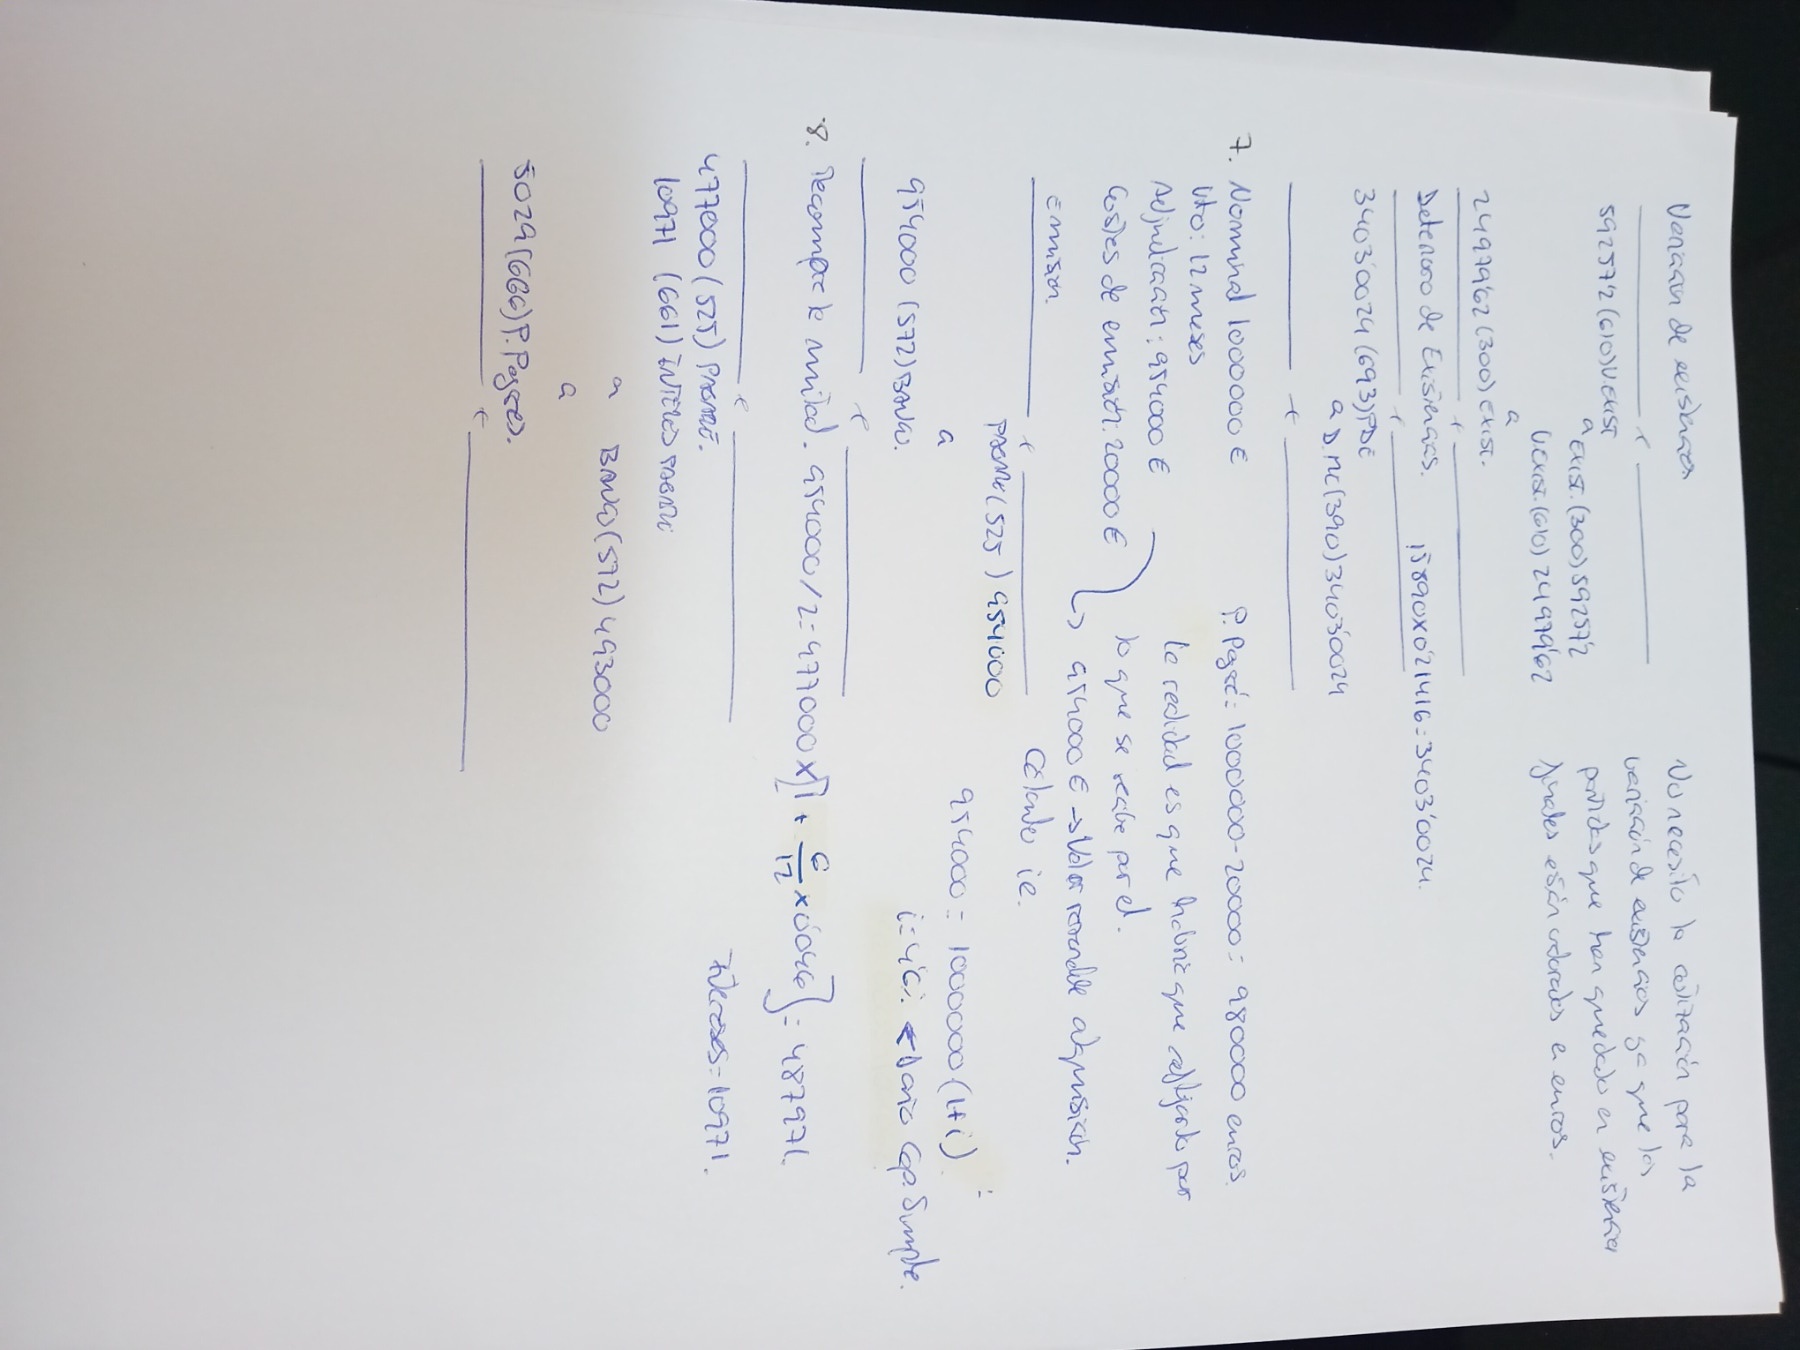 Variación de existencias
592572 (610) V EXIST
a EXIST. (300) 592572
No necesito la cotización para la
variación de existencias ya que las
partidas que han quedado en existencias
finales están valoradas en euros.
24979'62 (300) EXIST.
a
V EXIST. (610) 24979'62
Deterioro de Existencias. 15890x0'21416 = 3403'0024.
3403'0024 (693) PDE
a D. MC (390) 3403'0024
7. Nominal 1000000 €
Vto: 12 meses
Adjudicación: 954000 €
Costes de emisión: 20000 €
P. Pagaré = 1000000 - 20000 = 980000 euros.
la realidad es que habría que reflejarlo por
lo que se recibe por el.
954000 € → Valor razonable adquisición.
Emisión
Cálculo ie.
PAGARÉ (525) 954000
a
954000 (572) BANCO.
954000 = 1000000 (1+i)
i = 4'6% ← 1 año Cap. Simple.
8. Recompra la mitad. 954000/2 = 477000 x [1 + 6/12 x 0'046] = 487971.
Intereses = 10971.
477000 (525) PAGARÉ.
10971 (661) INTERES PAGARÉ
a BANCO (572) 493000
a
5029 (666) P. Pagarés.